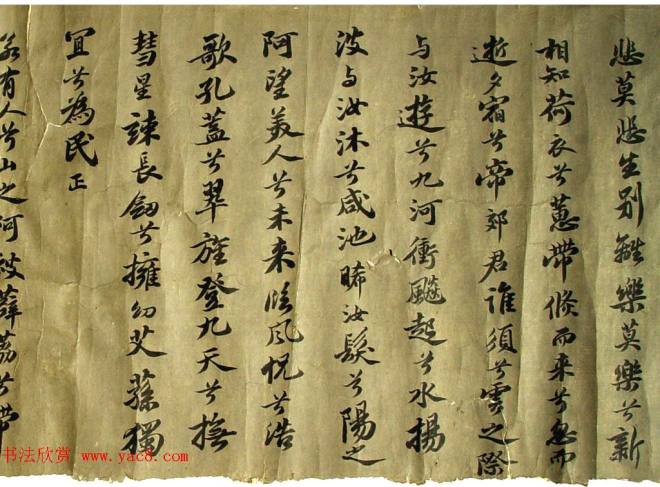 悲莫悲生別離樂莫樂兮新
相知荷衣兮蕙帶倏而来兮忽而
逝夕宿兮帝郊君誰須兮雲之際
与汝遊兮九河衝飈起兮水揚
波与汝沐兮咸池晞汝髮兮陽之
阿望美人兮未来臨風怳兮浩
歌孔蓋兮翠旌登九天兮撫
彗星竦長劒兮擁幼艾蓀獨
宜兮為民正
若有人兮山之阿被薜荔兮帶
书法欣赏 www.yac8.com